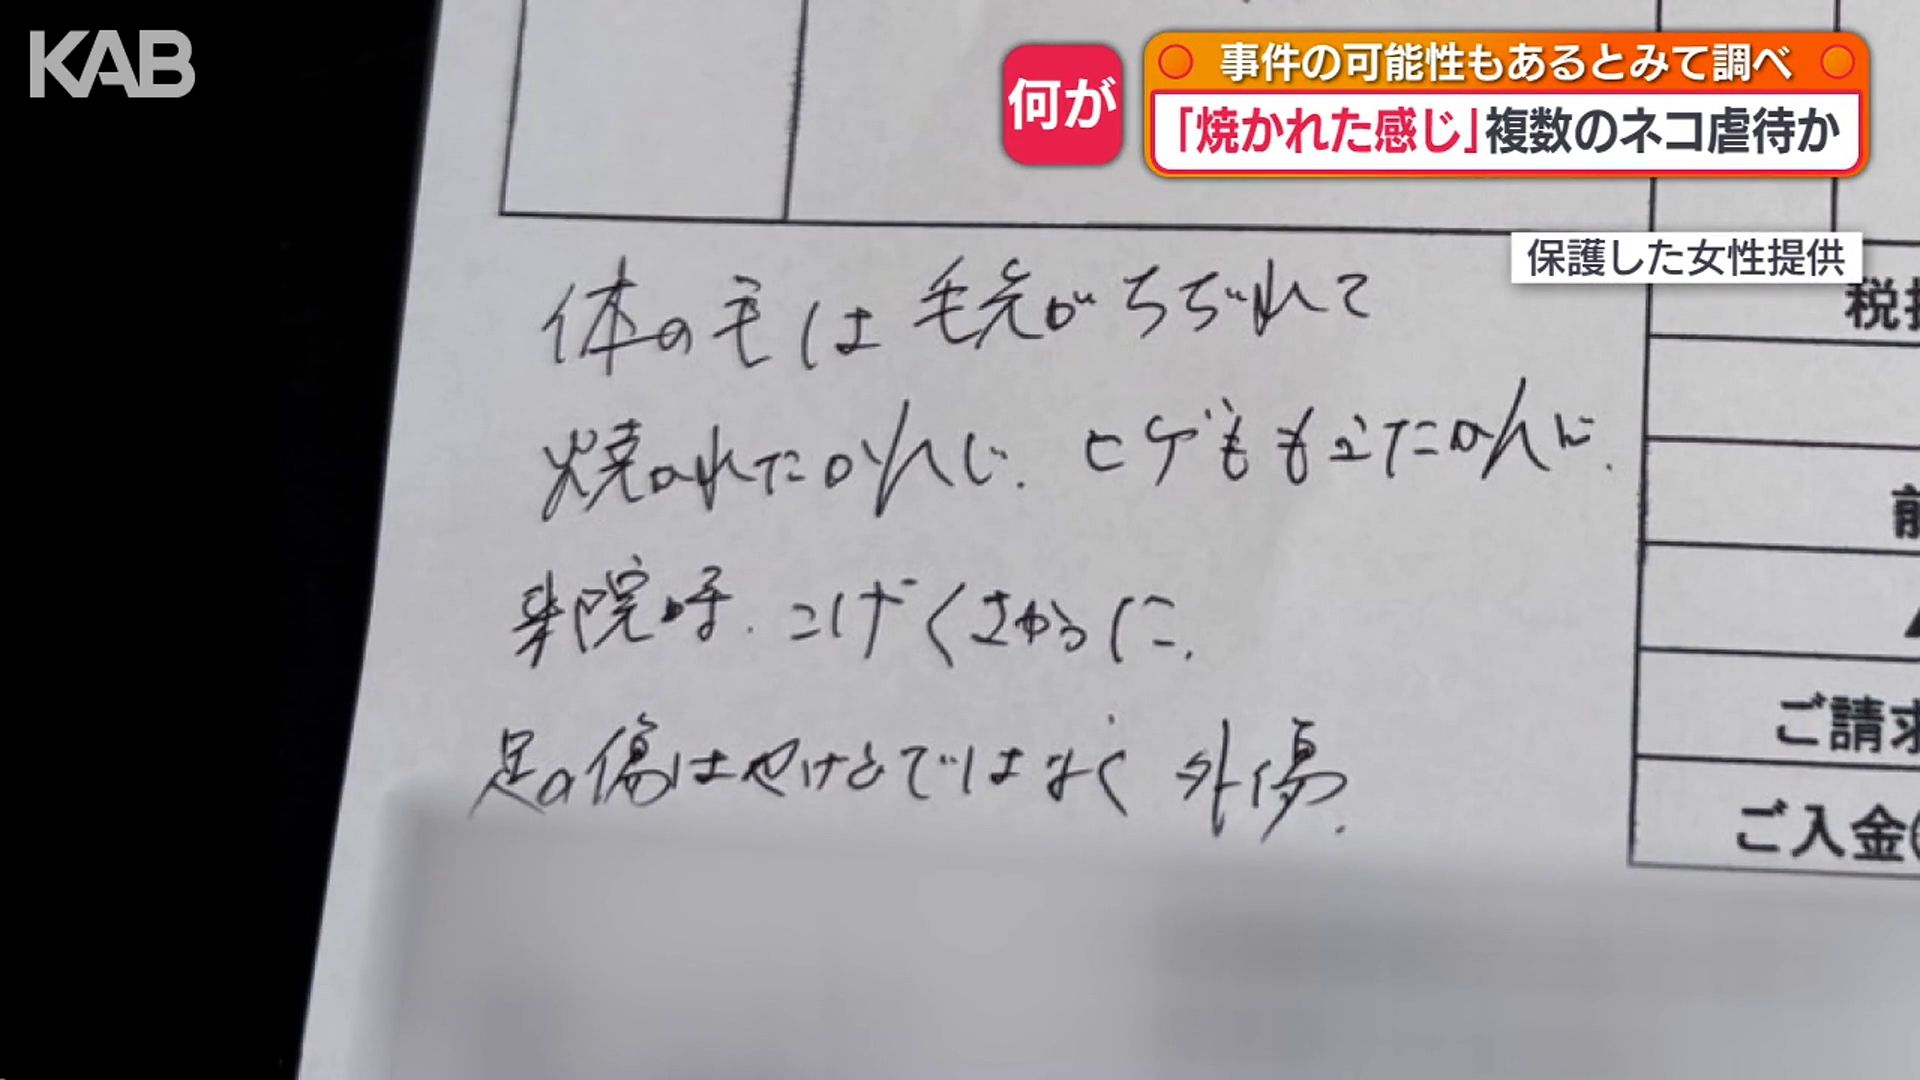 KAB
何が
事件の可能性もあるとみて調べ
「焼かれた感じ」複数のネコ虐待か
保護した女性提供
体の毛は毛先がちぢれて
焼かれたかんじ. ヒゲももえたかんじ.
来院時. こげくさかった.
足の傷はやけどではなく外傷.
税抜
前
▲
ご請求
ご入金(